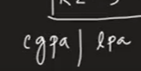 cgpa | lpa